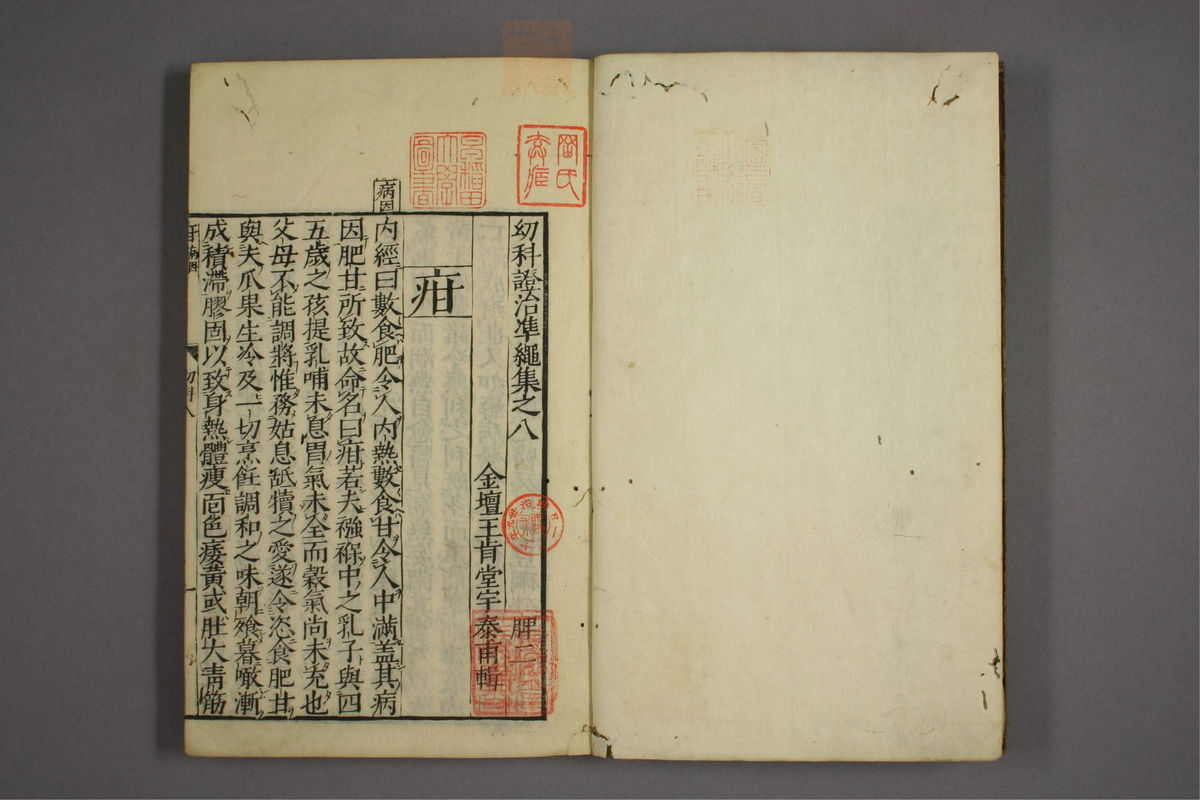 幼科證治準繩集之八
脾二
金壇王肯堂宇泰甫輯
疳
病因
內經曰數食肥令人內熱數食甘令人中滿盖其病
因肥甘所致故命名曰疳若夫襁褓中之乳子與四
五歲之孩提乳哺未息胃氣未全而穀氣尚未充也
父母不能調將惟務姑息舐犢之愛遂令恣食肥甘
與夫瓜果生冷及一切烹飪調和之味朝飱暮噉漸
成積滯膠固以致身熱體瘦面色痿黃或肚大青筋
幼科八
早稻田大學圖書